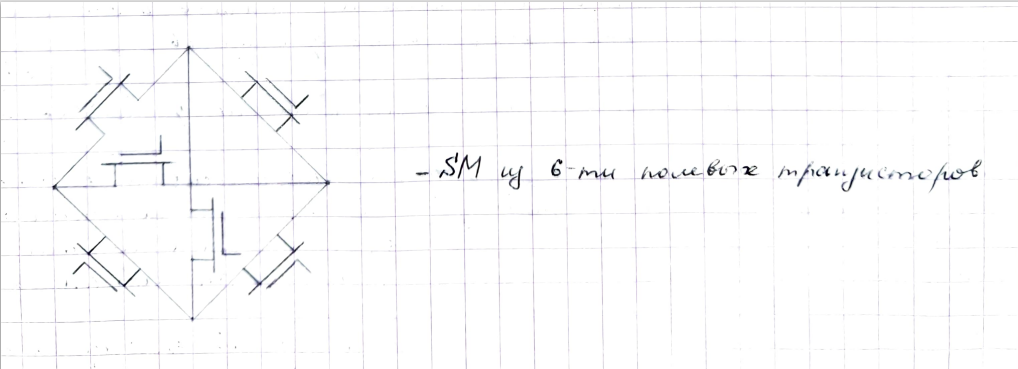 - SM из 6-ти полевых транзисторов